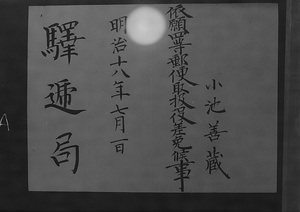 小池善蔵
依願四等郵便取扱役差免候事
明治十八年七月一日
驛遞局
A